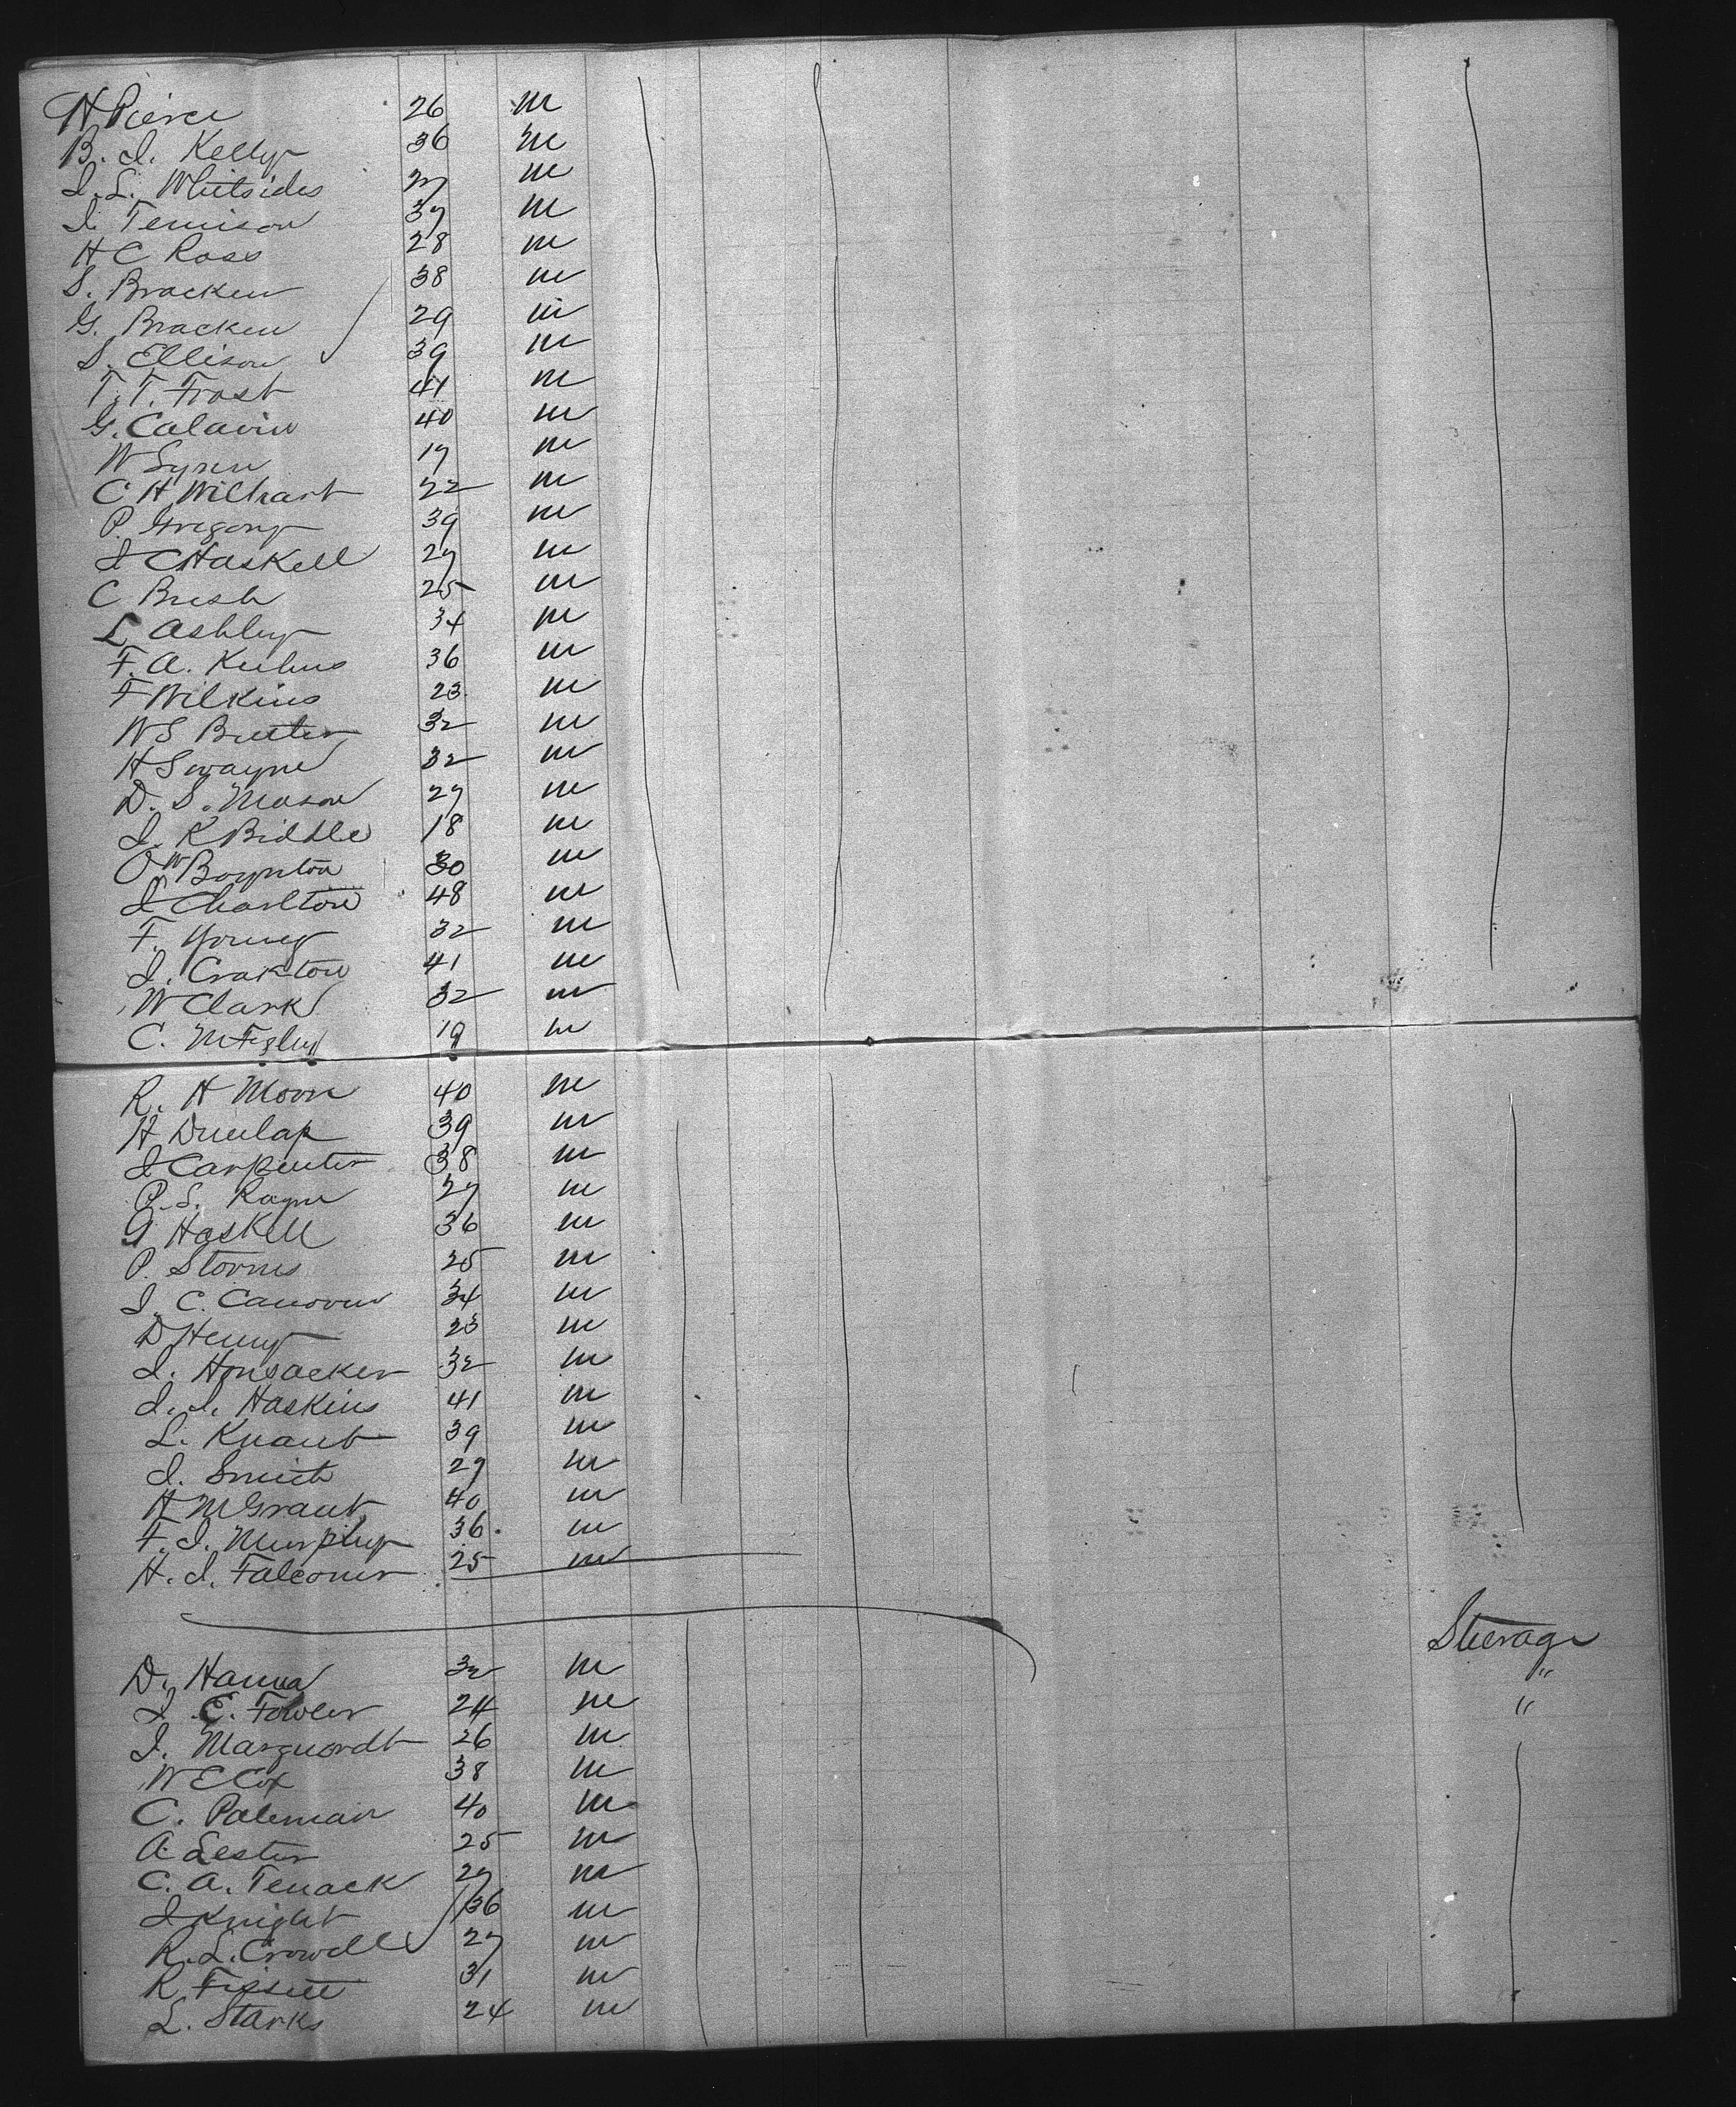 H Pierce 26 m
B. J. Kelly 36 m
J. L. Whitsides 27 m
J. Tennison 37 m
H C Ross 28 m
S. Bracken 38 m
G. Bracken 29 m
S. Ellison 39 m
T. T. Frost 41 m
G. Calavin 40 m
W Lynn 17 m
C H Wilhart 22 m
P. Gregory 39 m
J C Haskell 27 m
C Bush 25 m
L Ashley 34 m
F. A. Kuhns 36 m
F Wilkins 23 m
W S Butler 32 m
H Swayne 32 m
D. S. Mason 27 m
J. K Biddle 18 m
O W Boynton 30 m
J Charlton 48 m
F. Young 32 m
J. Crakton 41 m
W Clark 32 m
C. 19 m
R. H Moore 40 m
H Dunlap 39 m
J Carpenter 38 m
P. S. 27 m
G Haskell 36 m
P. Storms 25 m
J. C. Canovan 34 m
D Henry 23 m
J. Honsacker 32 m
J. J. Haskins 41 m
L. Knaub 39 m
J. Smith 29 m
H McGrant 40 m
F. J. Murphy 36 m
H. J. Falconer 25 m
Steerage
D. Hanna 32 m "
J. E. Fowler 24 m "
J. Marquordt 26 m
W E Cox 38 m
C. Paleman 40 m
A Lester 25 m
C. A. Tenack 27 m
J Knight 36 m
R. L. Crowell 27 m
R 31 m
L. Starks 24 m